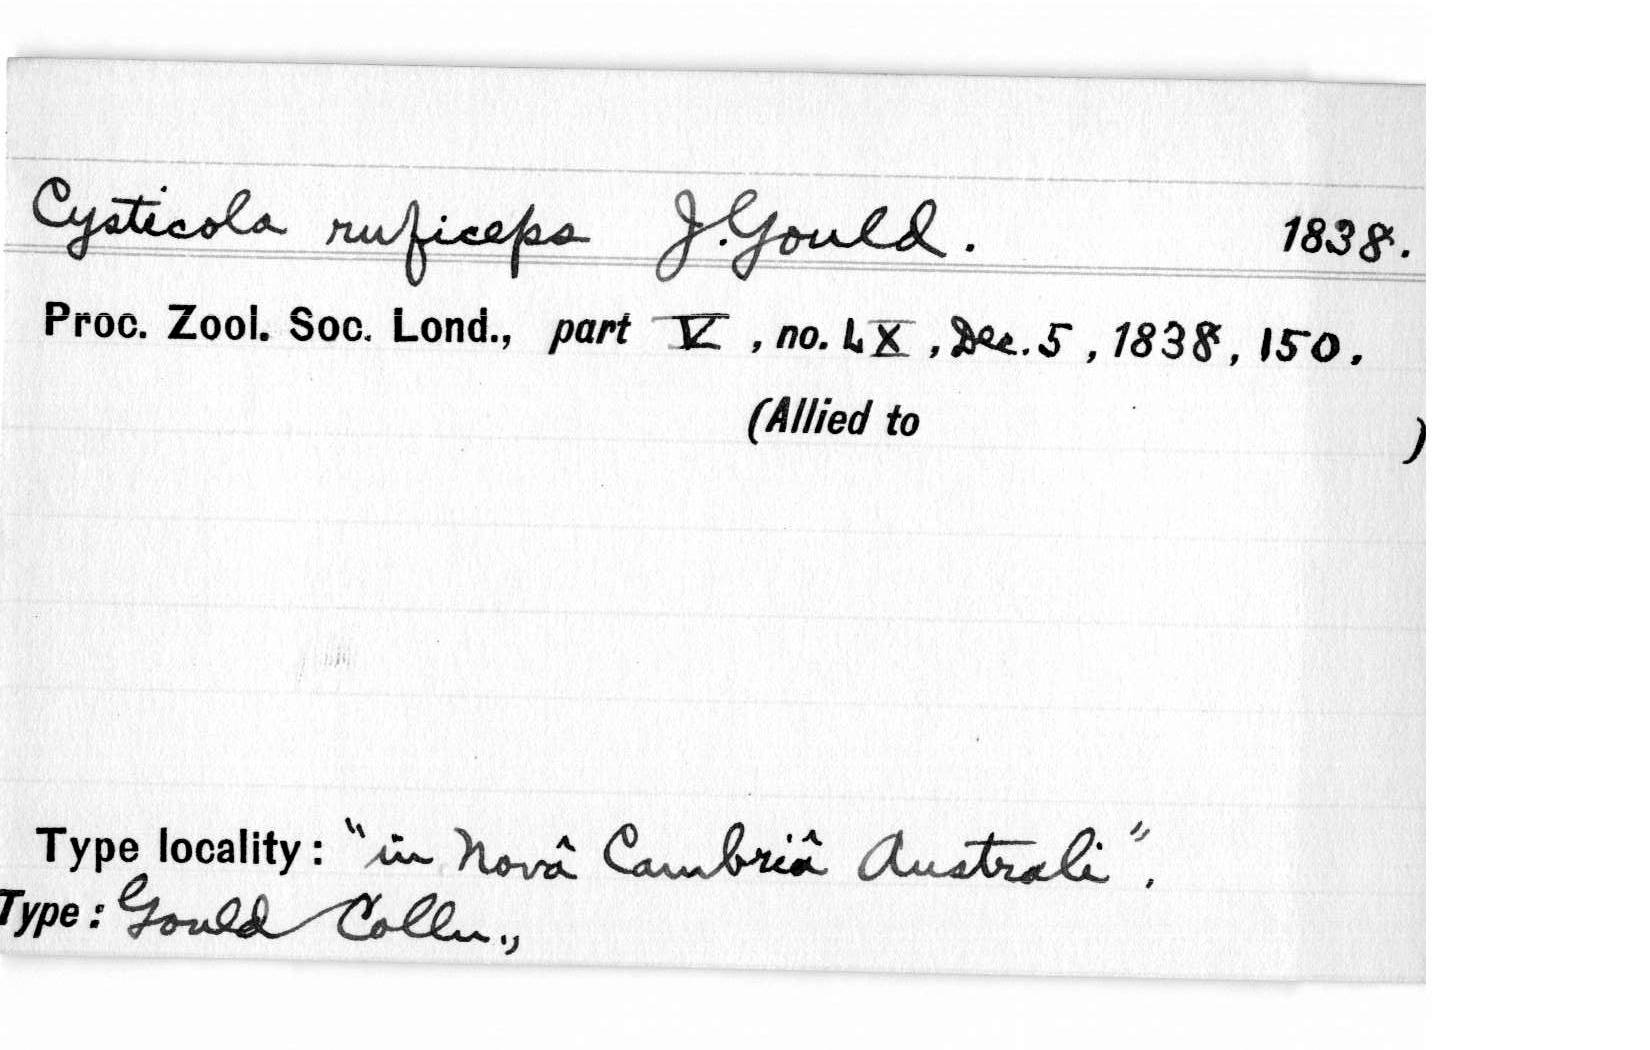 Cysticola ruficeps J. Gould. 1838.
Proc. Zool. Soc. Lond., part V, no. LX, Dec. 5, 1838, 150.
(Allied to )
Type locality: "in Novâ Cambriâ Australi".
Type: Gould Colln.,